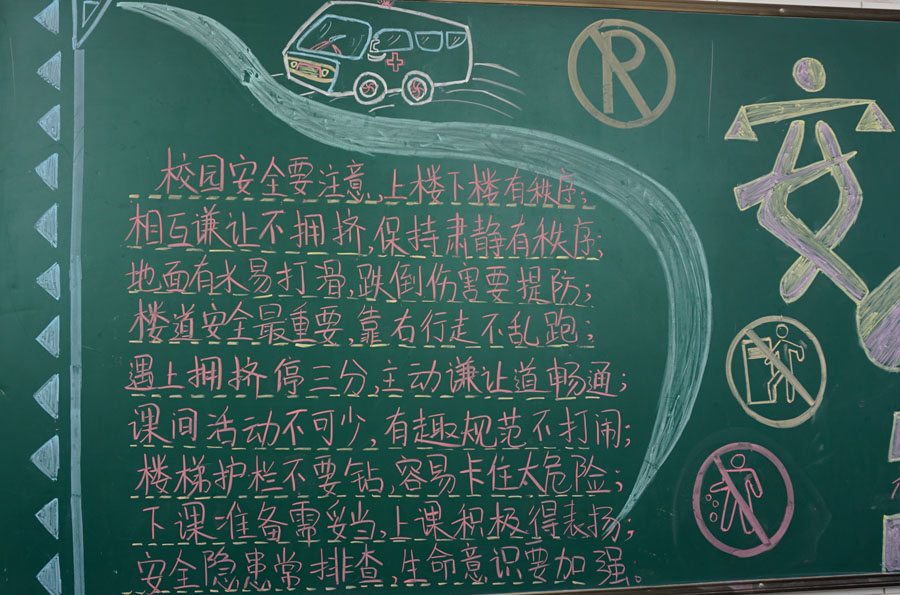 校园安全要注意,上楼下楼有秩序;
相互谦让不拥挤,保持肃静有秩序;
地面有水易打滑,跌倒伤害要提防;
楼道安全最重要,靠右行走不乱跑;
遇上拥挤停三分,主动谦让道畅通;
课间活动不可少,有趣规范不打闹;
楼梯护栏不要钻,容易卡住太危险;
下课准备需妥当,上课积极得表扬;
安全隐患常排查,生命意识要加强。
R
安